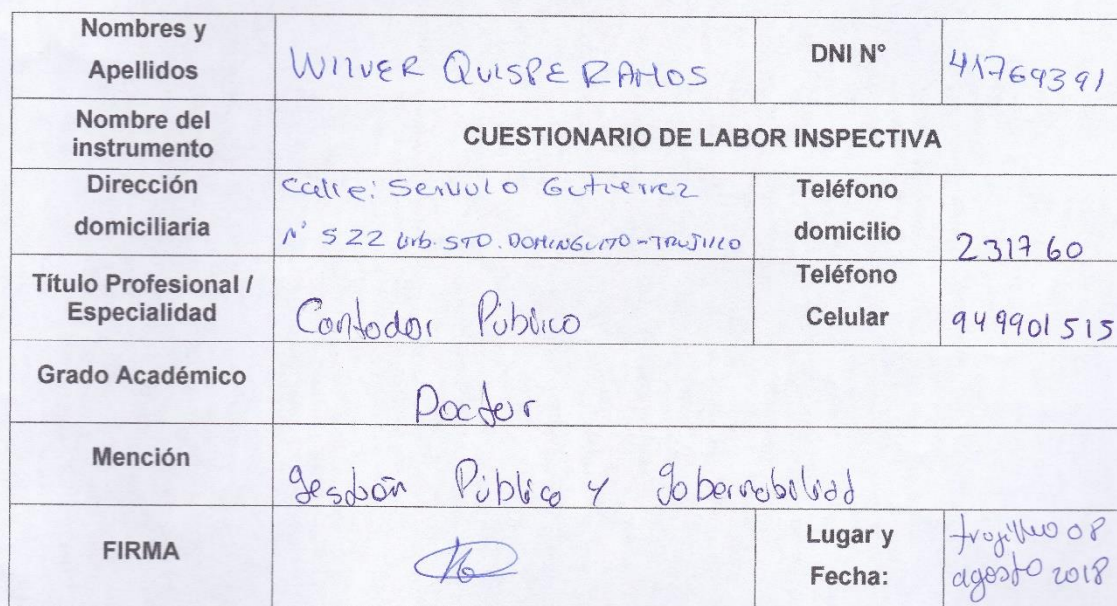 Nombres y
Apellidos
WILVER QUISPE RAMOS
DNI N°
41769391
Nombre del
instrumento
CUESTIONARIO DE LABOR INSPECTIVA
Dirección
domiciliaria
calle: Servulo Gutierrez
N° 522 Urb. STO. DOMINGUITO - TRUJILLO
Teléfono
domicilio
231760
Título Profesional /
Especialidad
Contador Público
Teléfono
Celular
949901515
Grado Académico
Doctor
Mención
Gestión Pública y Gobernabilidad
FIRMA
Lugar y
Fecha:
trujillo 08
agosto 2018